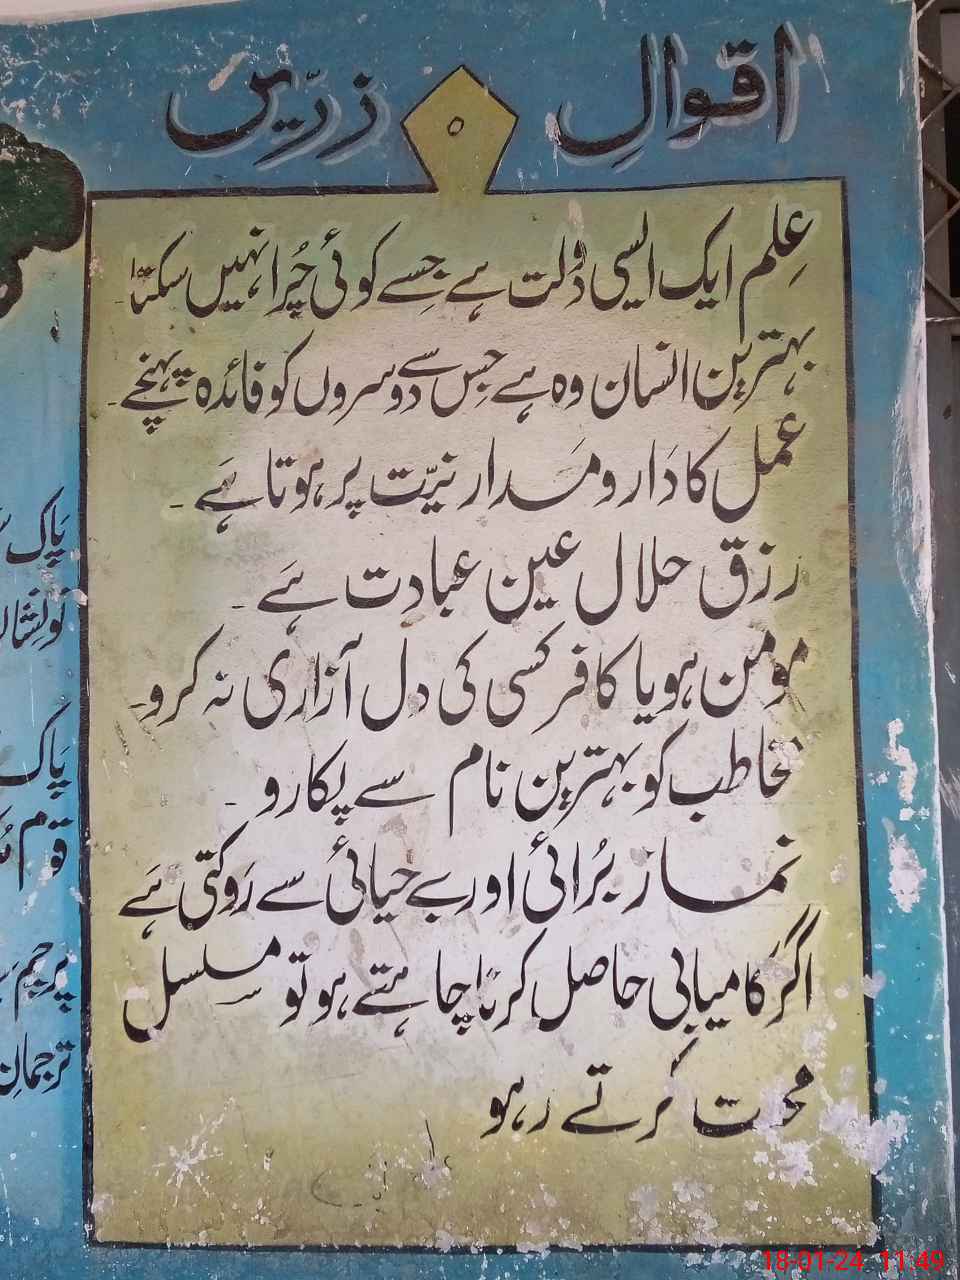 اقوالِ زرّیں
عِلم ایک ایسی دولت ہے جِسے کوئی چُرا نہیں سکتا
بہترین انسان وہ ہے جس سے دوسروں کو فائدہ پہنچے۔
عمل کا دَار و مَدار نیّت پر ہوتا ہَے۔
رزق حلال عین عبادت ہَے۔
مومن ہو یا کافر کسی کی دل آزاری نہ کرو۔
مخاطب کو بہترین نام سے پکارو۔
نماز بُرائی اور بے حیائی سے رَوکتی ہَے
اگر کامیابی حاصل کرنا چاہتے ہو تو مسلسل
محنت کرتے رہو
پَاک
تو نِشانِ
پَاک
قوم
پرچم
ترجمانِ
18-01-24 11:49